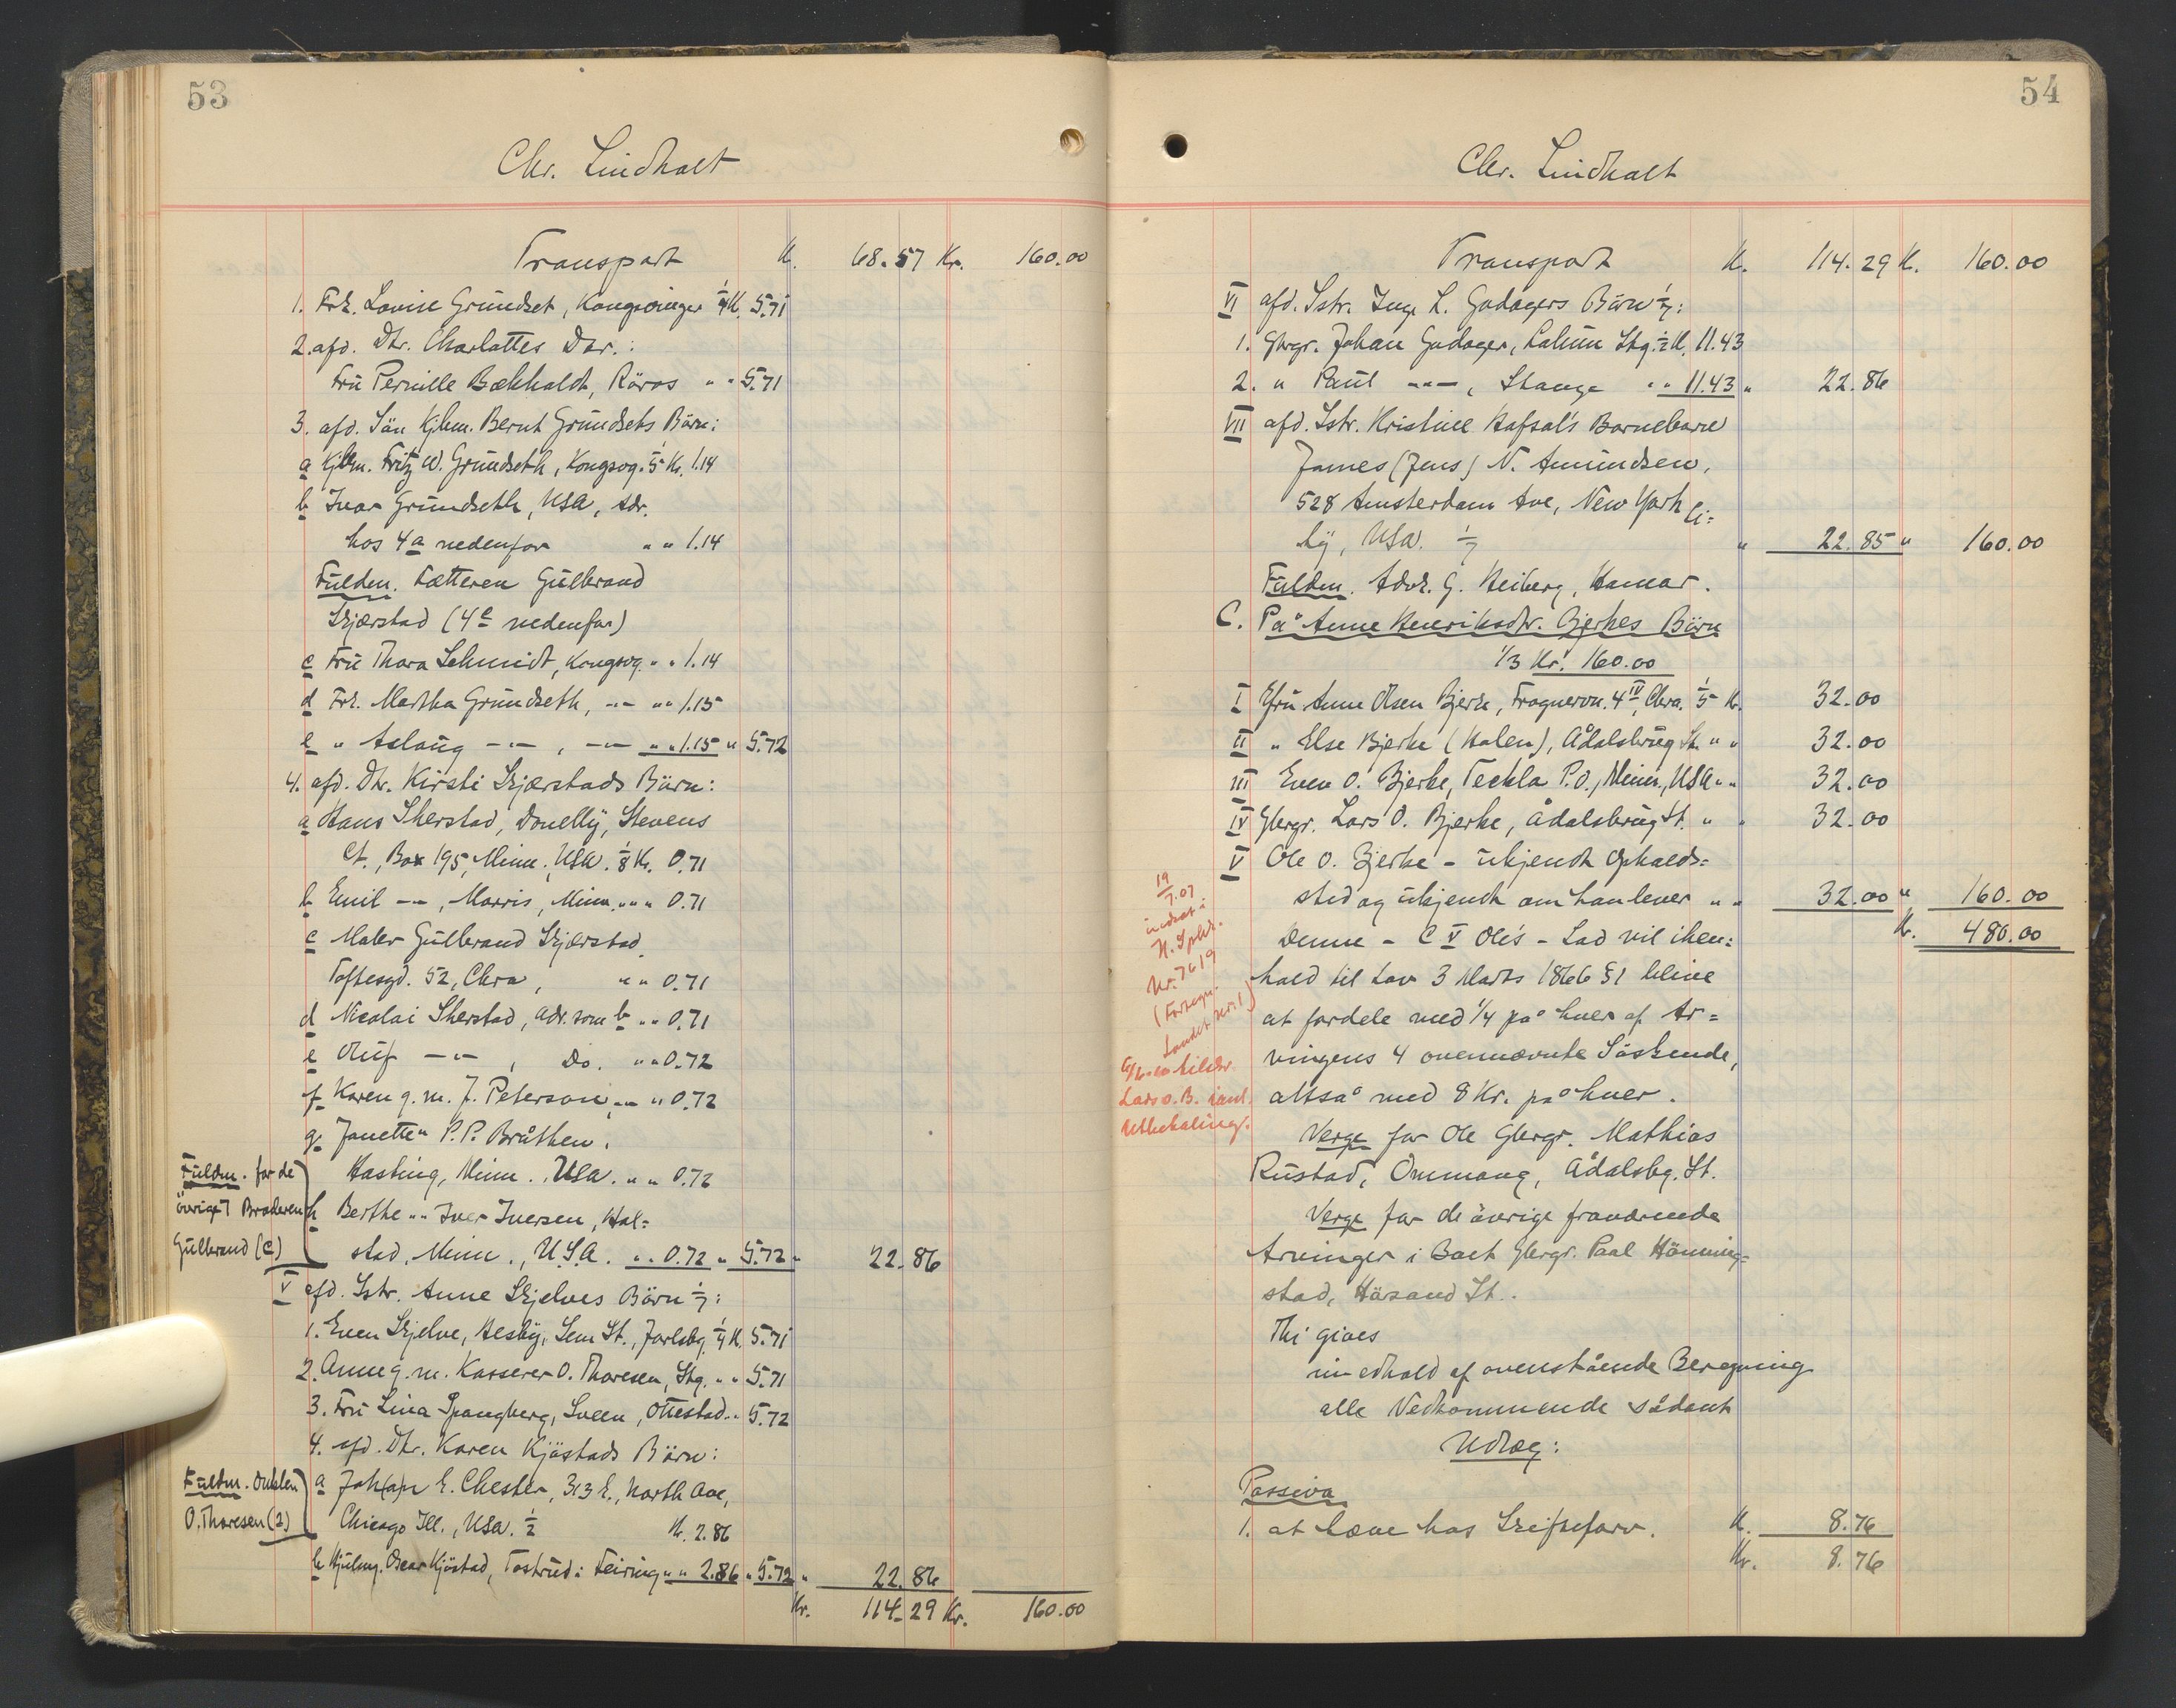 53
Chr. Lindholt
Transport K. 68.57 Kr. 160.00
1. Frk. Lovise Grundset, Kongsvinger 1/4 K. 5.71
2. afd. Dtr. Charlottes Dtr.:
Fru Pernille Bækholdt, Röros " " 5.71
3. afd. Sön Kjbm. Bernt Grundsets Börn:
a Kjbm. Fritz W. Grundseth, Kongsvg. 1/5 Kr. 1.14
b Ivar Grundseth, USA, adr.
hos 4a nedenfor " " 1.14
Fuldm. Fætteren Gulbrand
Skjærstad (4c nedenfor)
c Fru Thora Schmidt, Kongsvg. " " 1.14
d Frk. Martha Grundseth, -"- " " 1.15
e " Aslaug -"-, -"- " " 1.15 " 5.72
4. afd. Dtr. Kirsti Skjærstads Börn:
a Hans Sherstad, Donelly, Stevens
Ct., Box 195, Minn., USA. 1/8 Kr. 0.71
b Emil -"-, Morris, Minn. " " " 0.71
c Maler Gulbrand Skjærstad,
Toftesgd. 52, Chra, " " 0.71
d Nicolai Sherstad, adr. som b " " 0.71
e Oluf -"-, Do. " " 0.72
f Karen g. m. J. Peterson, -"- " 0.72
g. Janette " P. P. Bråthen,
Fuldm. for de
Hasting, Minn., USA. " " 0.72
övrige 7 Broderen
h Berthe " " Iver Iversen, Hal=
Gulbrand (c)
stad, Minn., U.S.A. " " 0.72 " 5.72 " 22.86
V afd. Sstr. Anne Skjelves Börn 1/7:
1. Even Skjelve, Aesby, Sem St., Jarlsbg. 1/4 K. 5.71
2. Anne g. m. Kasserer O. Thoresen, Stg. " " 5.71
3. Fru Lina Spangberg, Sveen, Ottestad " " 5.72
4. afd. Dtr. Karen Kjöstads Börn:
Fuldm. Onklen
a Joh(a)n E. Chester, 313 E., North Ave,
O. Thoresen (2)
Chicago Ill., USA. 1/2 Kr. 2.86
b Hjulmg. Oscar Kjöstad, Tostrud i Feiring " " 2.86 " 5.72 " 22.86
Kr. 114.29 Kr. 160.00
54
Chr. Lindholt
Transport K. 114.29 K. 160.00
VI afd. Sstr. Inge L. Godagers Börn 1/7:
1. Gbrgr. Johan Godager, Lalum Stg. 1/2 K. 11.43
2. " Paul -"-, Stange " " 11.43 " 22.86
VII afd. Sstr. Kristine Hafsals Barnebarn
James (Jens) N. Amundsen,
528 Amsterdam Ave, New York Ci=
ty, USA. 1/7 " 22.85 " 160.00
Fuldm. Adv. G. Heiberg, Hamar.
C. På Anne Henriksdtr. Bjerkes Börn
1/3 Kr. 160.00
I Fru Anne Olsen Bjerke, Frognervn. 4 IV, Chra. 1/5 K. 32.00
II " Else Bjerke (Holen), Ådalsbrug St. " " 32.00
III Even O. Bjerke, Teckla P.O., Minn., USA " " 32.00
IV Gbrgr. Lars O. Bjerke, Ådalsbrug St. " " 32.00
V Ole O. Bjerke - ukjendt Opholds=
sted og ukjendt om han lever " " 32.00 " 160.00
Kr. 480.00
Denne - C V Ole's - Lod vil i hen=
hold til Lov 3 Marts 1866 § 1 blive
at fordele med 1/4 på hver af Ar=
vingens 4 ovennævnte Söskende,
altså med 8 Kr. på hver.
19/7.07
indsat i
H. Spbk.
Nr. 7619
Lars O. B.
Utbetaling.
Verge for Ole Gbrgr. Mathias
Rustad, Ommang, Ådalsbg. St.
Verge for de övrige fraværende
Arvinger i Boet Gbrgr. Paal Hömmig=
stad, Hörsand St..
Thi gives
i medhold af ovenstående Beregning
alle Vedkommende sådant
Udlæg:
Passiva
1. at hæve hos Skifteforv. K. 8.76
Kr. 8.76